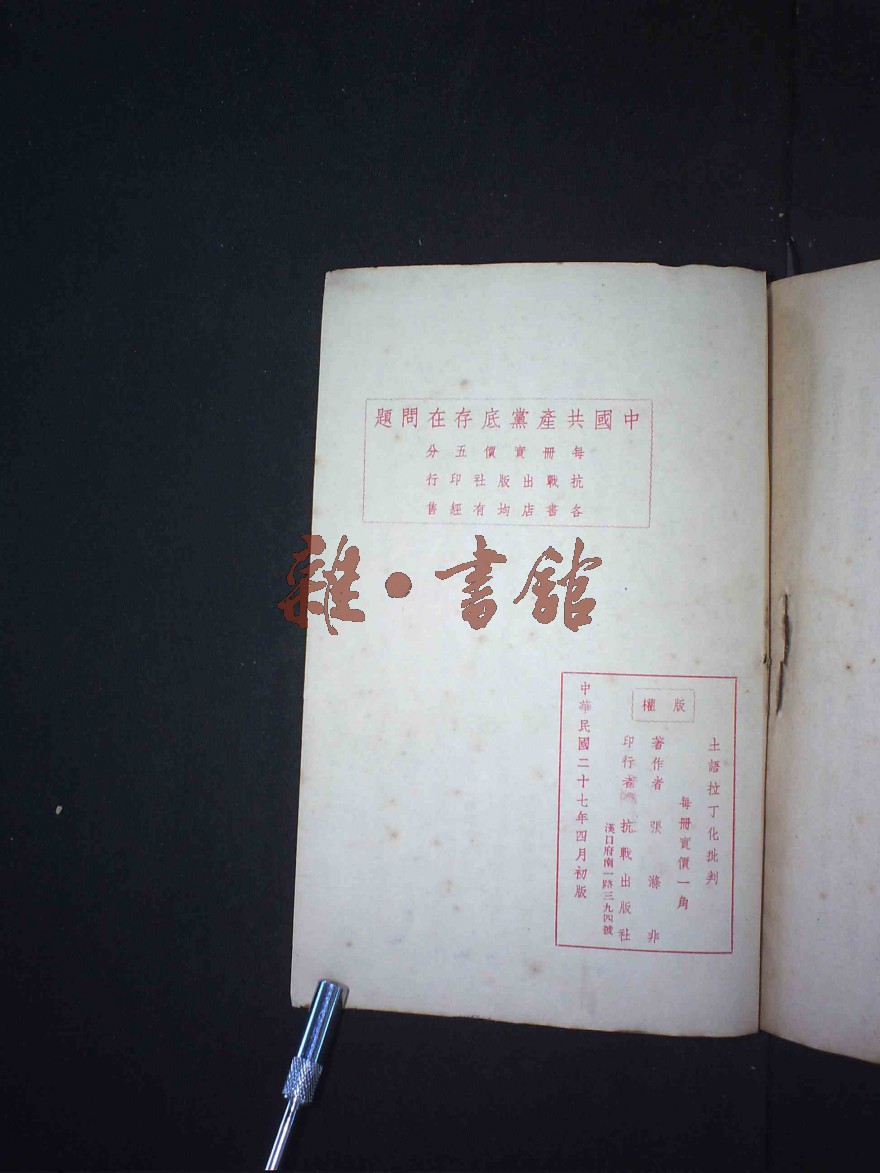 中國共產黨底存在問題
每冊實價五分
抗戰出版社印行
各書店均有經售
雜·書館
版權
土語拉丁化批判
每冊實價一角
著作者 張滌非
印行者 抗戰出版社
漢口府南一路三九四號
中華民國二十七年四月初版